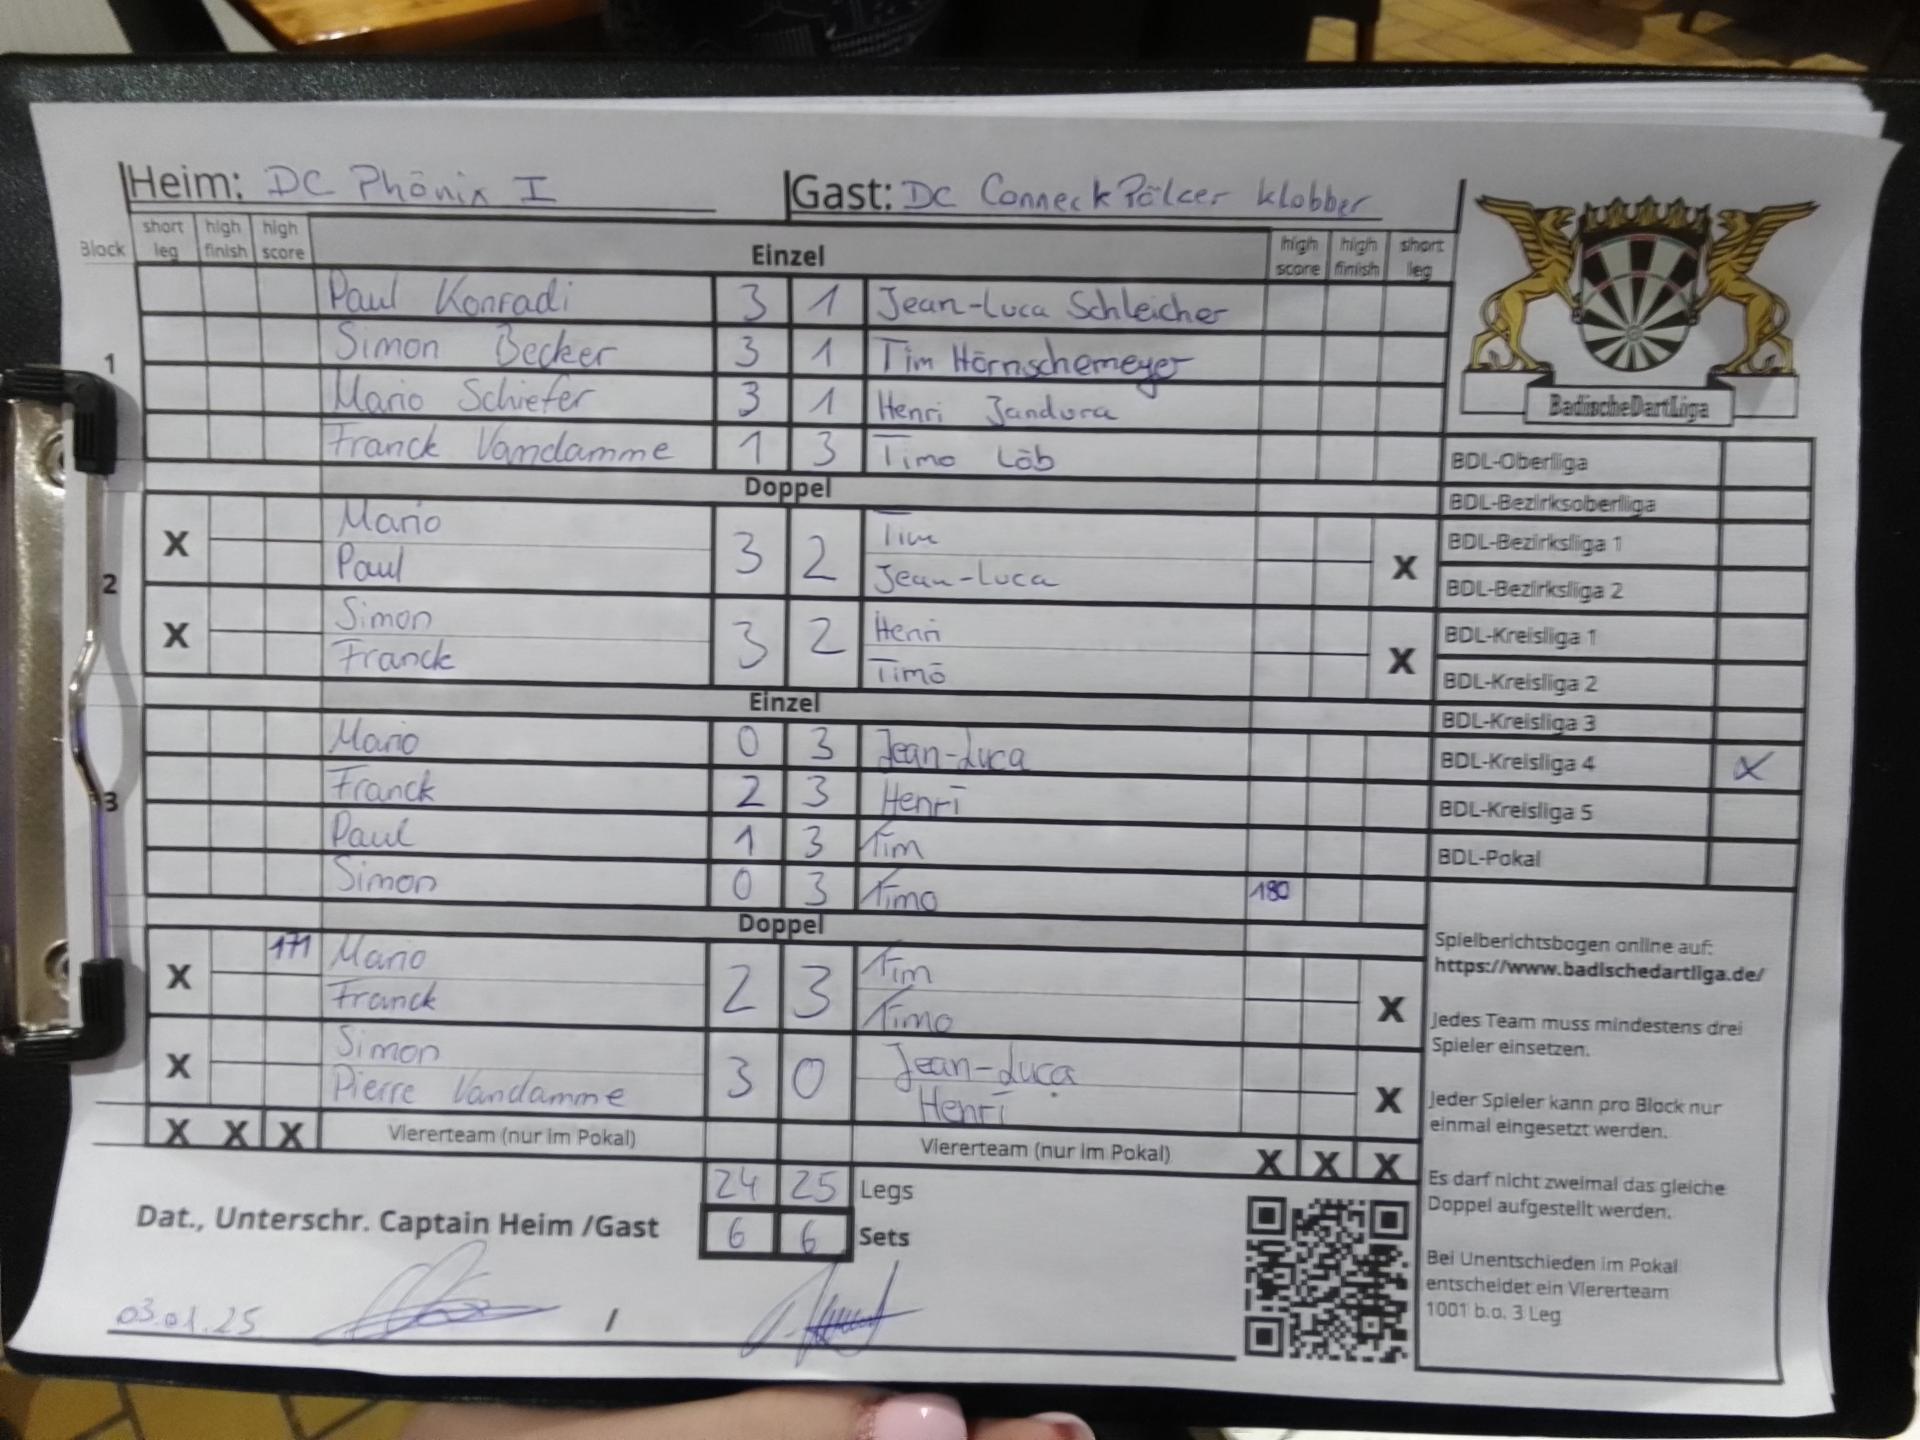 Heim: DC Phönix I Gast: DC Conneck Pälzer Klobber
Block short leg high finish high score Einzel high score high finish short leg
Paul Konradi 3 1 Jean-Luca Schleicher
1 Simon Becker 3 1 Tim Hörnschemeyer
Mario Schiefer 3 1 Henri Jandura
Franck Vandamme 1 3 Timo Löb
BadischeDartLiga
Doppel
X Mario 3 2 Tim X
Paul Jean-Luca
2
X Simon 3 2 Henri X
Franck Timo
Einzel
Mario 0 3 Jean-Luca
Franck 2 3 Henri
3
Paul 1 3 Tim
Simon 0 3 Timo 180
Doppel
X 171 Mario 2 3 Tim X
Franck Timo
X Simon 3 0 Jean-Luca X
Pierre Vandamme Henri
X X X Viererteam (nur im Pokal) Viererteam (nur im Pokal) X X X
24 25 Legs
6 6 Sets
Dat., Unterschr. Captain Heim /Gast
03.01.25 /
BDL-Oberliga
BDL-Bezirksoberliga
BDL-Bezirksliga 1
BDL-Bezirksliga 2
BDL-Kreisliga 1
BDL-Kreisliga 2
BDL-Kreisliga 3
BDL-Kreisliga 4 X
BDL-Kreisliga 5
BDL-Pokal
Spielberichtsbogen online auf:
https://www.badischedartliga.de/
Jedes Team muss mindestens drei
Spieler einsetzen.
Jeder Spieler kann pro Block nur
einmal eingesetzt werden.
Es darf nicht zweimal das gleiche
Doppel aufgestellt werden.
Bei Unentschieden im Pokal
entscheidet ein Viererteam
1001 b.o. 3 Leg